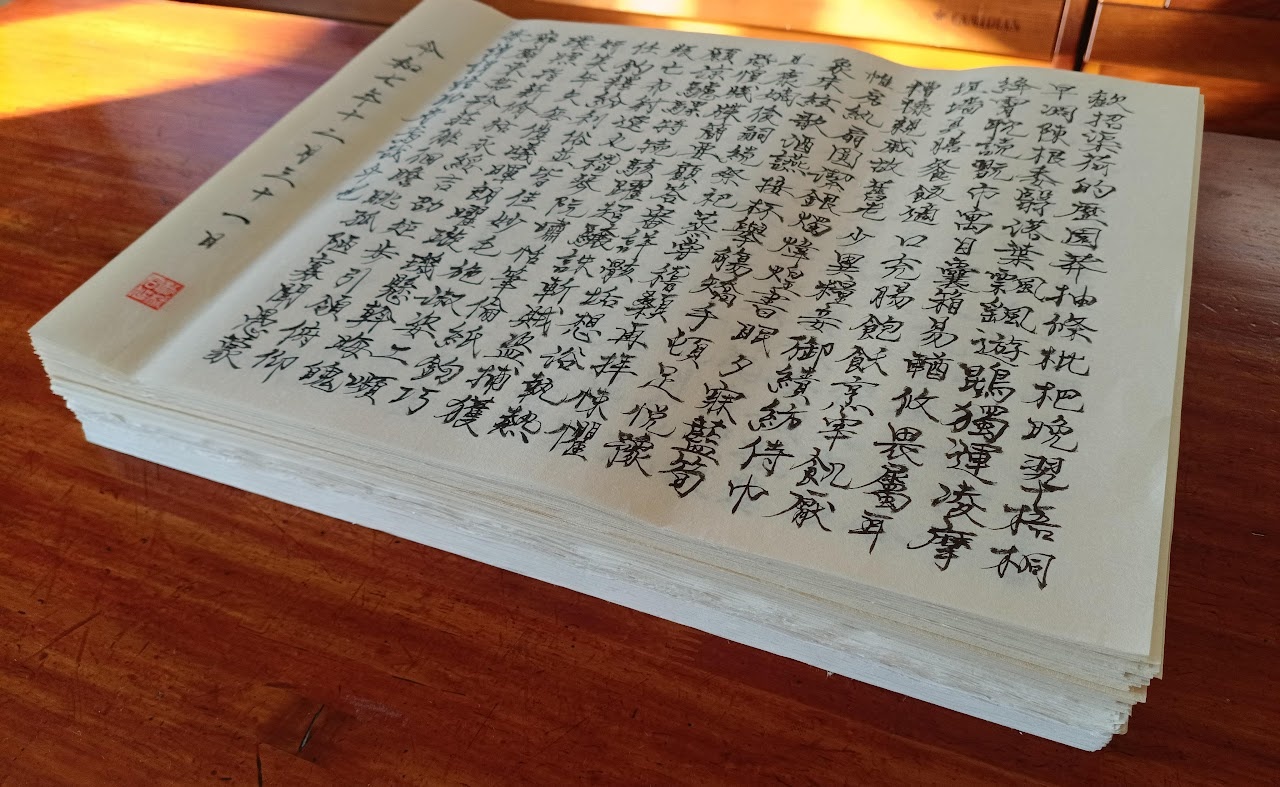 歡招渠荷的歷園莽抽條枇杷晩翠梧桐
早凋陳根委翳落葉飄颻遊鵾獨運凌摩
絳霄耽讀翫市寓目囊箱易輶攸畏屬耳
垣墻具膳餐飯適口充腸飽飫烹宰飢厭
糟糠親戚故舊老少異糧妾御績紡侍巾
帷房紈扇圓潔銀燭煒煌晝眠夕寐藍筍
象牀絃歌酒讌接杯舉觴矯手頓足悅豫
且康嫡後嗣續祭祀蒸嘗稽顙再拜悚懼
恐惶牋牒簡要顧答審詳骸垢想浴執熱
願涼驢騾犢特駭躍超驤誅斬賊盜捕獲
叛亡布射遼丸嵇琴阮嘯恬筆倫紙鈞巧
任釣釋紛利俗並皆佳妙毛施淑姿工顰
妍笑年矢每催曦暉朗曜璇璣懸斡晦魄
環照指薪修祜永綏吉劭矩步引領俯仰
廊廟束帶矜莊徘徊瞻眺孤陋寡聞愚蒙
等誚謂語助者焉哉乎也
令和七年十二月三十一日